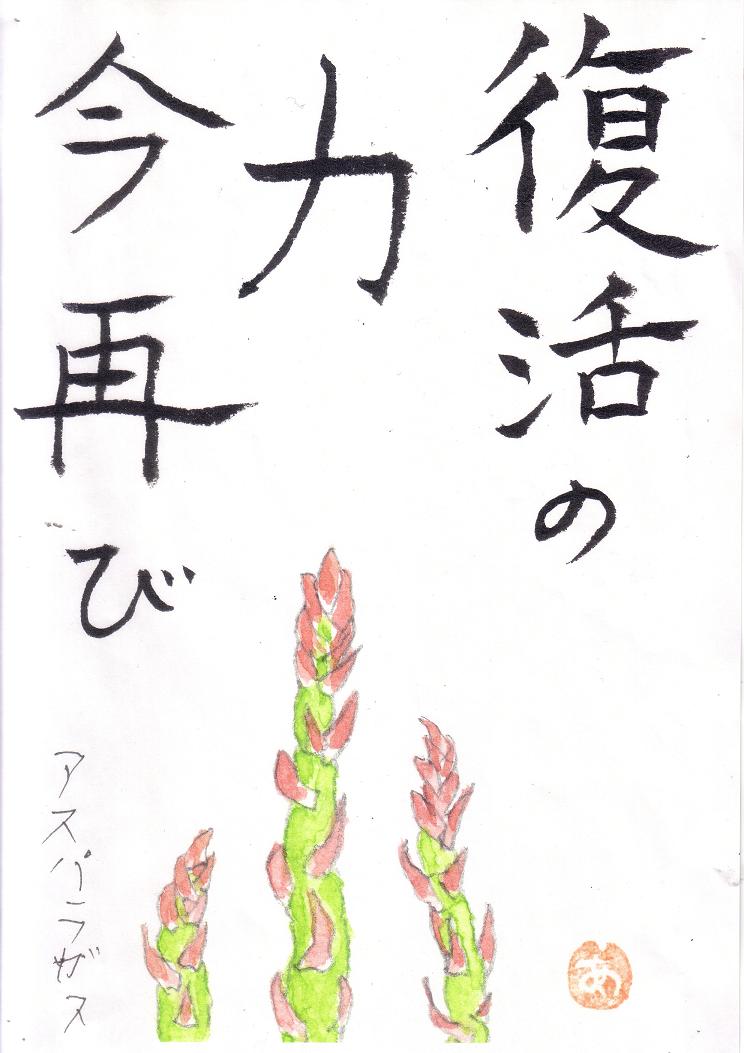 復活の
力
今再び
アスパラガス
あ